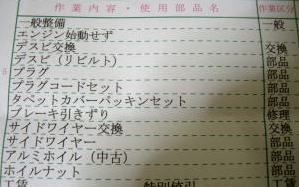 作業内容・使用部品名 作業区分
一般整備 一般
エンジン始動せず
デスビ交換 交換
デスビ（リビルト） 部品
プラグ 部品
プラグコードセット 部品
タペットカバーパッキンセット 部品
ブレーキ引きずり 修理
サイドワイヤー交換 交換
サイドワイヤー 部品
アルミホイル（中古） 部品
ホイルナット 部品
工賃 特別値引 工賃